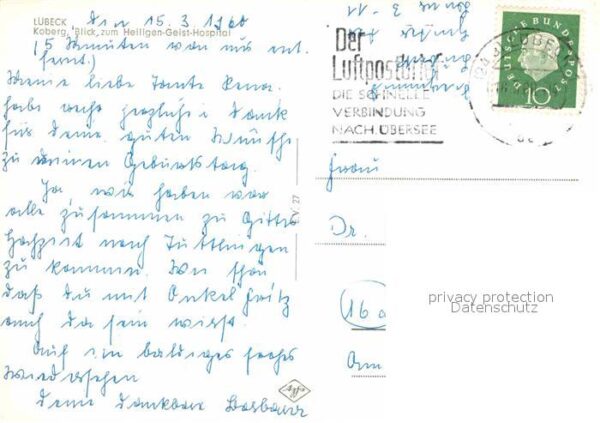 LÜBECK
den 15. 3. 1960
Koberg, Blick zum Heiligen-Geist-Hospital
(5 Minuten von uns ent
fernt)
Meine liebe Tante Rena.
habe recht herzlich Dank
für deine guten Wünsche
zu meinem Geburtstag.
Ja wir haben vor
alle zusammen zu Gittis
Hochzeit nach Tuttlingen
zu kommen. Wie schön
daß du mit Onkel Fritz
auch da sein wirst.
Auf ein baldiges frohes
Wiedersehen
deine dankbare Barbara
E.V. 27
Agfa
Der
Luftpostbrief
DIE SCHNELLE
VERBINDUNG
NACH ÜBERSEE
DEUTSCHE BUNDESPOST
10
LÜBECK
Frau
Dr.
(16
privacy protection
Datenschutz